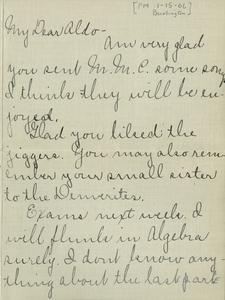 [PM 1-15-06
Burlington]
My Dear Aldo-
Am very glad
you sent M.M.C. some song
I think they will be en-
joyed.
Glad you liked the
jiggers. You may also rem-
ember your small sister
to the Demerites.
Exams next week. I
will flunk in Algebra
surely. I dont know any-
thing about the last part